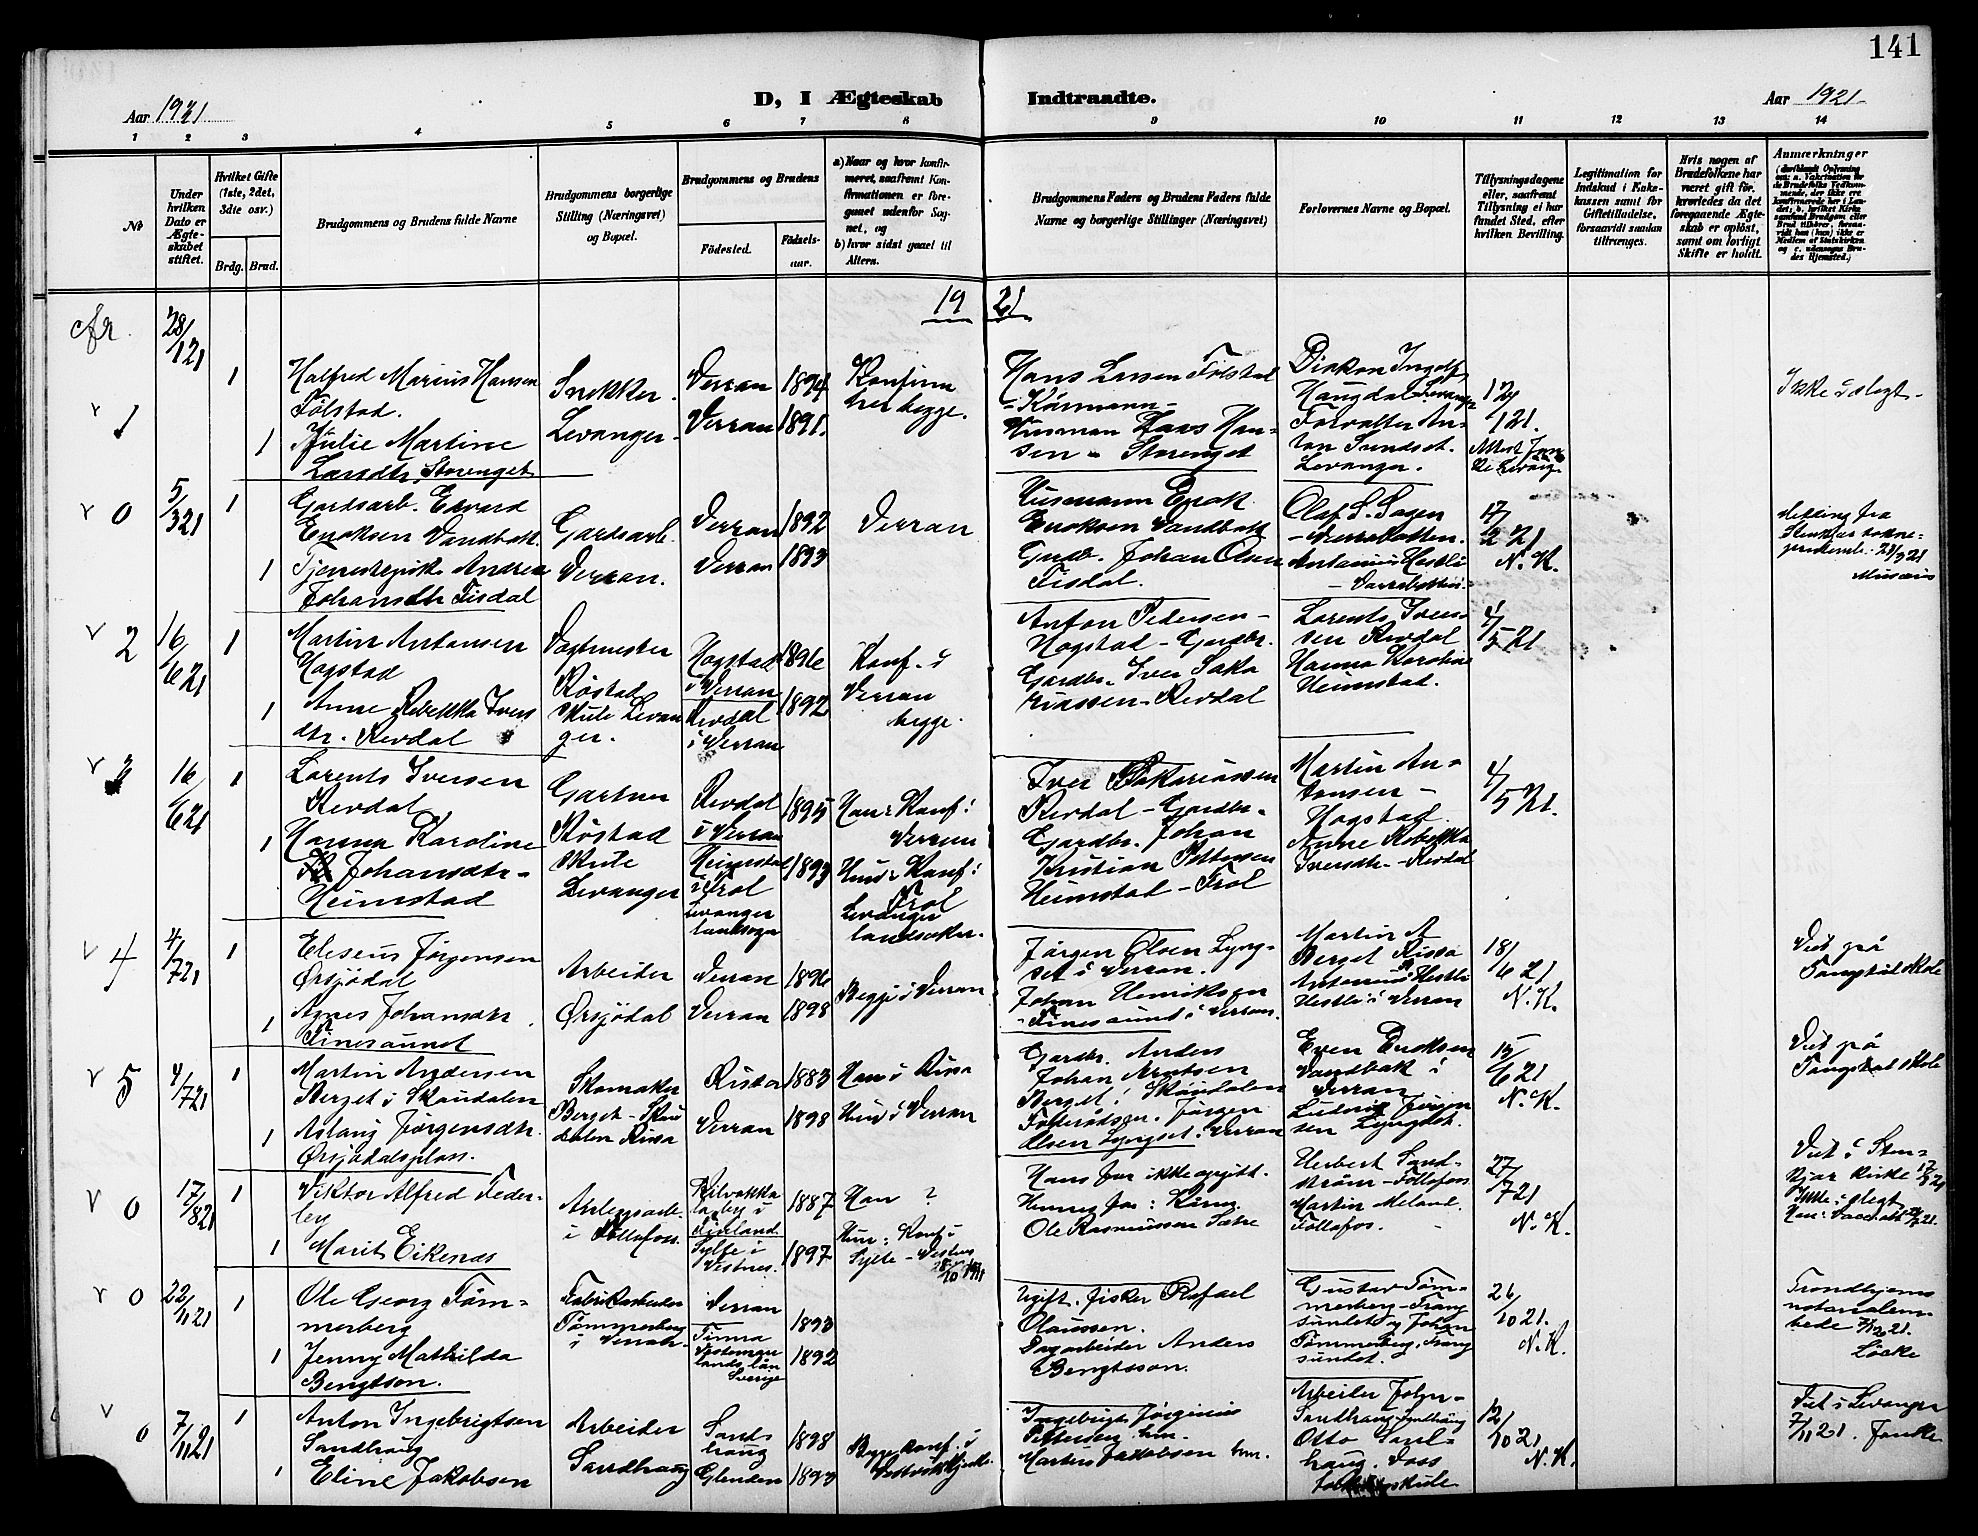 141
Aar 1921
D, I Ægteskab Indtraadte.
Aar 1921
1 2 3 4 5 6 7 8 9 10 11 12 13 14
№
Under hvilken Dato er Ægteskabet stiftet.
Hvilket Gifte (1ste, 2det, 3die osv.)
Brdg. Brud.
Brudgommens og Brudens fulde Navne
Brudgommens borgerlige Stilling (Næringsvei) og Bopæl.
Brudgommens og Brudens
Fødested. Fødselsaar.
a) Naar og hvor konfirmeret, saafremt Konfirmationen er foregaaet udenfor Sognet, og
b) hvor sidst gaaet til Alters.
Brudgommens Faders og Brudens Faders fulde Navne og borgerlige Stillinger (Næringsvei)
Forlovernes Navne og Bopæl.
Tillysningsdagene eller, saafremt Tillysning ei har fundet Sted, efter hvilken Bevilling.
Legitimation for Indskud i Enkekassen samt for Giftetilladelse, forsaavidt saadan tiltrænges.
Hvis nogen af Brudefolkene har været gift før, hvorledes da det foregaaende Ægteskab er opløst, samt om lovligt Skifte er holdt.
Anmærkninger
19 21
28/1 21
1
1
Halfred Marius Hansen
Følstad.
1
Julie Martine
Larsdtr. Storenget
Snekker.
Levanger.
Verran 1894
Verran 1891.
Konfirm
her begge.
Hans Larsen Følstad
Husmann Lars Hansen - Storenget
Diakon Ingolf
Haugdal Levanger
Forvalter Anton Sundset.
Levanger.
12/1 21.
Ikke i slegt.
0
5/3 21
1
Gardsarb. Edvard
Eriksen Vandbakk.
1
Tjenestepike Andrea
Johansdtr Tisdal
Gardsarb.
Verran.
Verran 1892
Verran 1893
Verran
Husmann Erik
Eriksen Vandbakk
Gardbr. Johan Olsen
Tisdal.
Olaf S. Sagen
- Verrabotten.
Antonius Hestli
- Verrabotten.
17/2 21
N. K.
Melding fra
2
16/6 21
1
Martin Antonsen
Hogstad
1
Anne Rebekka Iversdtr. Revdal
Vogtmester
Røstad
skule Levanger.
Hogstad
i Verran 1896
Revdal
i Verran 1892
Konf. i
Verran
begge.
Anton Pedersen -
Hogstad - Gardbr.
Gardbr. Iver Sakariassen - Revdal
Lorents Iversen Revdal
Hanna Karoline
Heimstad.
4/5 21
3
16/6 21
1
Lorents Iversen
Revdal
1
Hanna Karoline
Johansdtr -
Heimstad
Gartner
Røstad
skule
Levanger
Revdal
i Verran 1895
Heimstad
i Frol
Levanger
landsogn 1893
Han: Konf i
Verran
Hun: Konf i
Frol
Levanger
landsoken.
Iver Sakariassen
Revdal - Gardbr.
Gardbr. Johan
Kristian Pettersen
Heimstad - Frol
Martin Antonsen -
Hogstad.
Anne Rebekka
Iversdtr. - Revdal
4/5 21.
4
4/7 21
1
Eliseus Jørgensen
Ørsjødal
1
Agnes Johansdtr
Finesaunet
Arbeider
Ørsjødal
Verran 1896
Verran 1898
Begge i Verran
Jørgen Olsen Lyngset i Verran.
Johan Henriksen
- Finesaunet i Verran.
Martin A
Berget Rissa
Antonius Hestli
Hestli i Verran
18/6 21
N. K.
Viet på
Tangstad skole
5
4/7 21
1
Martin Andersen
Berget i Skaudalen
1
Aslaug Jørgensdtr.
Ørsjødalsplass.
Skomaker
Berget - Skaudalen Rissa
Rissa 1883
Verran 1898
Han i Rissa
Hun i Verran
Gardbr. Anders
Johan Arntsen
Berget i Skaudalen
Jørgen
Olsen Lyngset i Verran
Even Eriksen
Vandbak i
Verran
Ludvig Jørgensen Lyngset.
15/6 21
N. K.
Viet på
Tangstad skole
0
17/8 21
1
Viktor Alfred Federley
1
Marit Eikenæs
Anlegsarb.
i Follafoss.
Finland 1887
Sylte i
Vestnes. 1897
Han ?
Hun: Konf i
Sylte - Vestnes
Hans far ikke opgitt.
Hennes far: Kirkeg.
Ole Rasmussen Sætre
Herbert Sandstrøm - Follafoss
Martin Meland.
Follafos.
27/7 21
N. K.
Viet i Stenkjær kirke 17/8 21
Ikke i slegt
0
22/11 21
1
Ole Georg Tømmerberg
1
Jenny Mathilda
Bengtson.
Fabrikarbeider
Tømmerberg
i Verran.
Verran 1893
Sverige 1892
Ugift. fisker Rafael
Olaussen.
Dagarbeider Anders
Bengtsson.
Gustav Tømmerberg - Trangsundet og Johan
Tømmerberg, Trangsundet.
26/10 21.
N. K.
Trondhjems
notarialembede
0
7/11 21
1
Anton Ingebrigtsen
Sandhaug
1
Eline Jakobsen
Arbeider
Sandhaug
Sandhaug 1898
Glenden 1893
Begge konf. i
Ingebrigt Jørginius
Pettersen hm.
Marius Jakobsen hm.
Arbeider John
Sandhaug, Sandhaug
Otto Sandhaug. Foss
12/10 21
N. K.
Viet i Levanger
7/11 21.